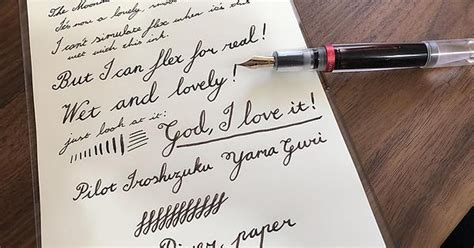 The Moonman
It's now a lovely,
I can't simulate flex when it's this
wet with this ink.
But I can flex for real!
Wet and lovely!
just look at it:
God, I love it!
Pilot Iroshizuku Yama Guri
paper